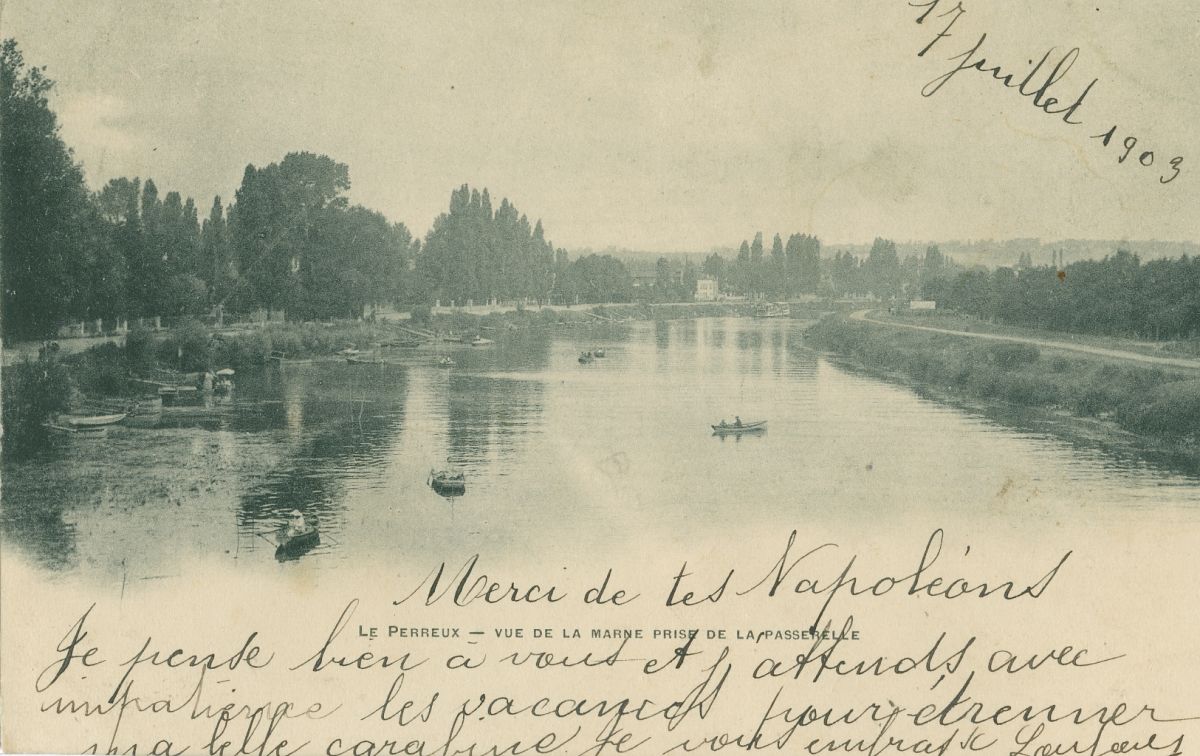 17 Juillet 1903
Merci de tes Napoléons
LE PERREUX — VUE DE LA MARNE PRISE DE LA PASSERELLE
Je pense bien à vous et j'attends avec
impatience les vacances pour étrenner
ma belle carabine Je vous